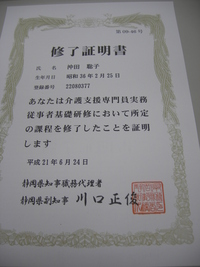 第09-46号
修了証明書
氏名 沖田 聡子
生年月日 昭和36年2月25日
登録番号 22080377
あなたは介護支援専門員実務
従事者基礎研修において所定
の課程を修了したことを証明
します
平成21年6月24日
静岡県知事職務代理者
静岡県副知事 川口正俊